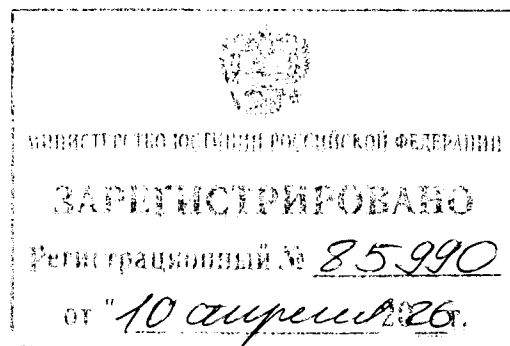 МИНИСТЕРСТВО ЮСТИЦИИ РОССИЙСКОЙ ФЕДЕРАЦИИ
ЗАРЕГИСТРИРОВАНО
Регистрационный № 85990
от "10 апреля 2026г.